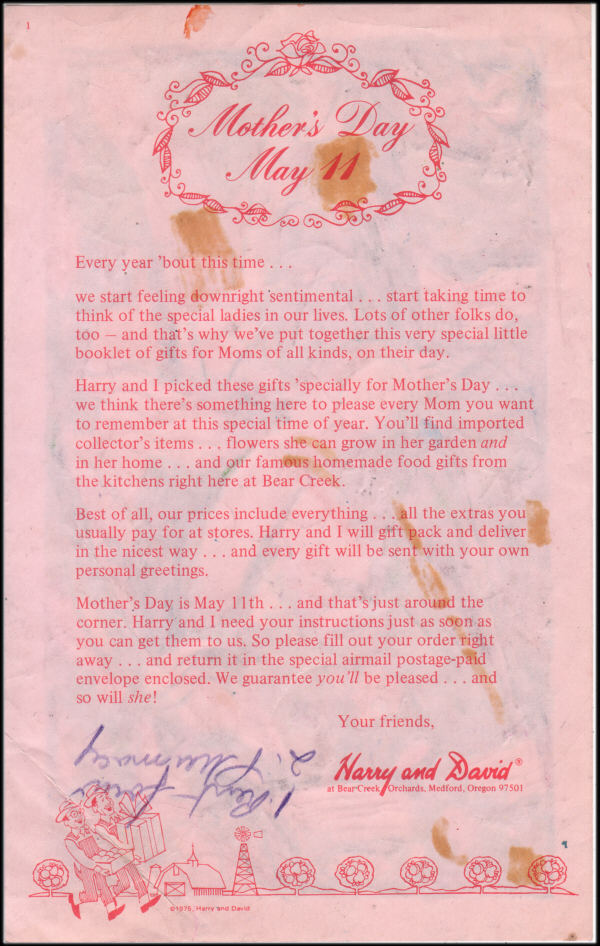 1
Mother's Day
May 11
Every year 'bout this time . . .
we start feeling downright sentimental . . . start taking time to
think of the special ladies in our lives. Lots of other folks do,
too — and that's why we've put together this very special little
booklet of gifts for Moms of all kinds, on their day.
Harry and I picked these gifts 'specially for Mother's Day . . .
we think there's something here to please every Mom you want
to remember at this special time of year. You'll find imported
collector's items . . . flowers she can grow in her garden and
in her home . . . and our famous homemade food gifts from
the kitchens right here at Bear Creek.
Best of all, our prices include everything . . . all the extras you
usually pay for at stores. Harry and I will gift pack and deliver
in the nicest way . . . and every gift will be sent with your own
personal greetings.
Mother's Day is May 11th . . . and that's just around the
corner. Harry and I need your instructions just as soon as
you can get them to us. So please fill out your order right
away . . . and return it in the special airmail postage-paid
envelope enclosed. We guarantee you'll be pleased . . . and
so will she!
Your friends,
Harry and David®
at Bear Creek Orchards, Medford, Oregon 97501
1.
2. Pharmacy
©1975, Harry and David